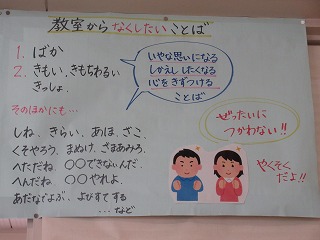 教室からなくしたいことば
1. ばか
2. きもい、きもちわるい
きっしょ、
いやな思いになる
しかえし したくなる
心をきずつける
ことば
そのほかにも…
しね、きらい、あほ、ざこ、
くそやろう、まぬけ、ざまあみろ、
へただね、〇〇できないんだ、
へんだね 〇〇やれよ、
あだなでよぶ、よびすてする
…など
ぜったいに
つかわない!!
やくそく
だよ!!